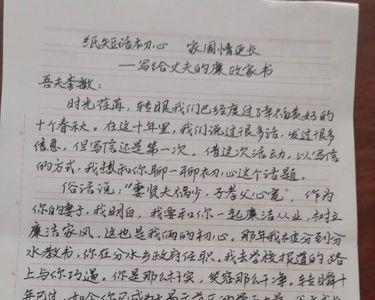 纸短话初心 家国情更长
—写给丈夫的廉政家书
吾夫李敏：
时光荏苒，转眼我们已经度过了幸福美好的
十个春秋。在这十年里，我们说过很多话，发过很多
信息，但写信还是第一次。借这次活动，以写信
的方式，我想和你聊一聊初心这个话题。
俗话说："妻贤夫祸少，子孝父心宽"，作为
你的妻子，我明白，我要和你一起廉洁从业，树立
廉洁家风，这也是我俩的初心。那年我被分到分
水教书，你在分水乡政府任职。我去学校报道的路
上与你巧遇。你是那么朴实，笑容那么干净。转眼
年过